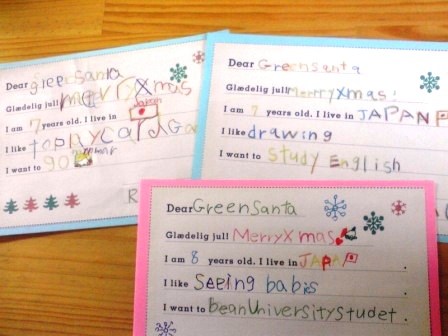 Dear greensanta
Glædelig jul! merryxmas
I am 7 years old. I live in Japan
I like
I want to go
R
Dear Greensanta
Glædelig jul! Merryxmas!
I am 7 years old. I live in JAPAN
I like drawing
I want to study English
Dear GreenSanta
Glædelig jul! MerryXmas
I am 8 years old. I live in JAPAN.
I like Seeing babis.
I want to beanUniversitystudet.